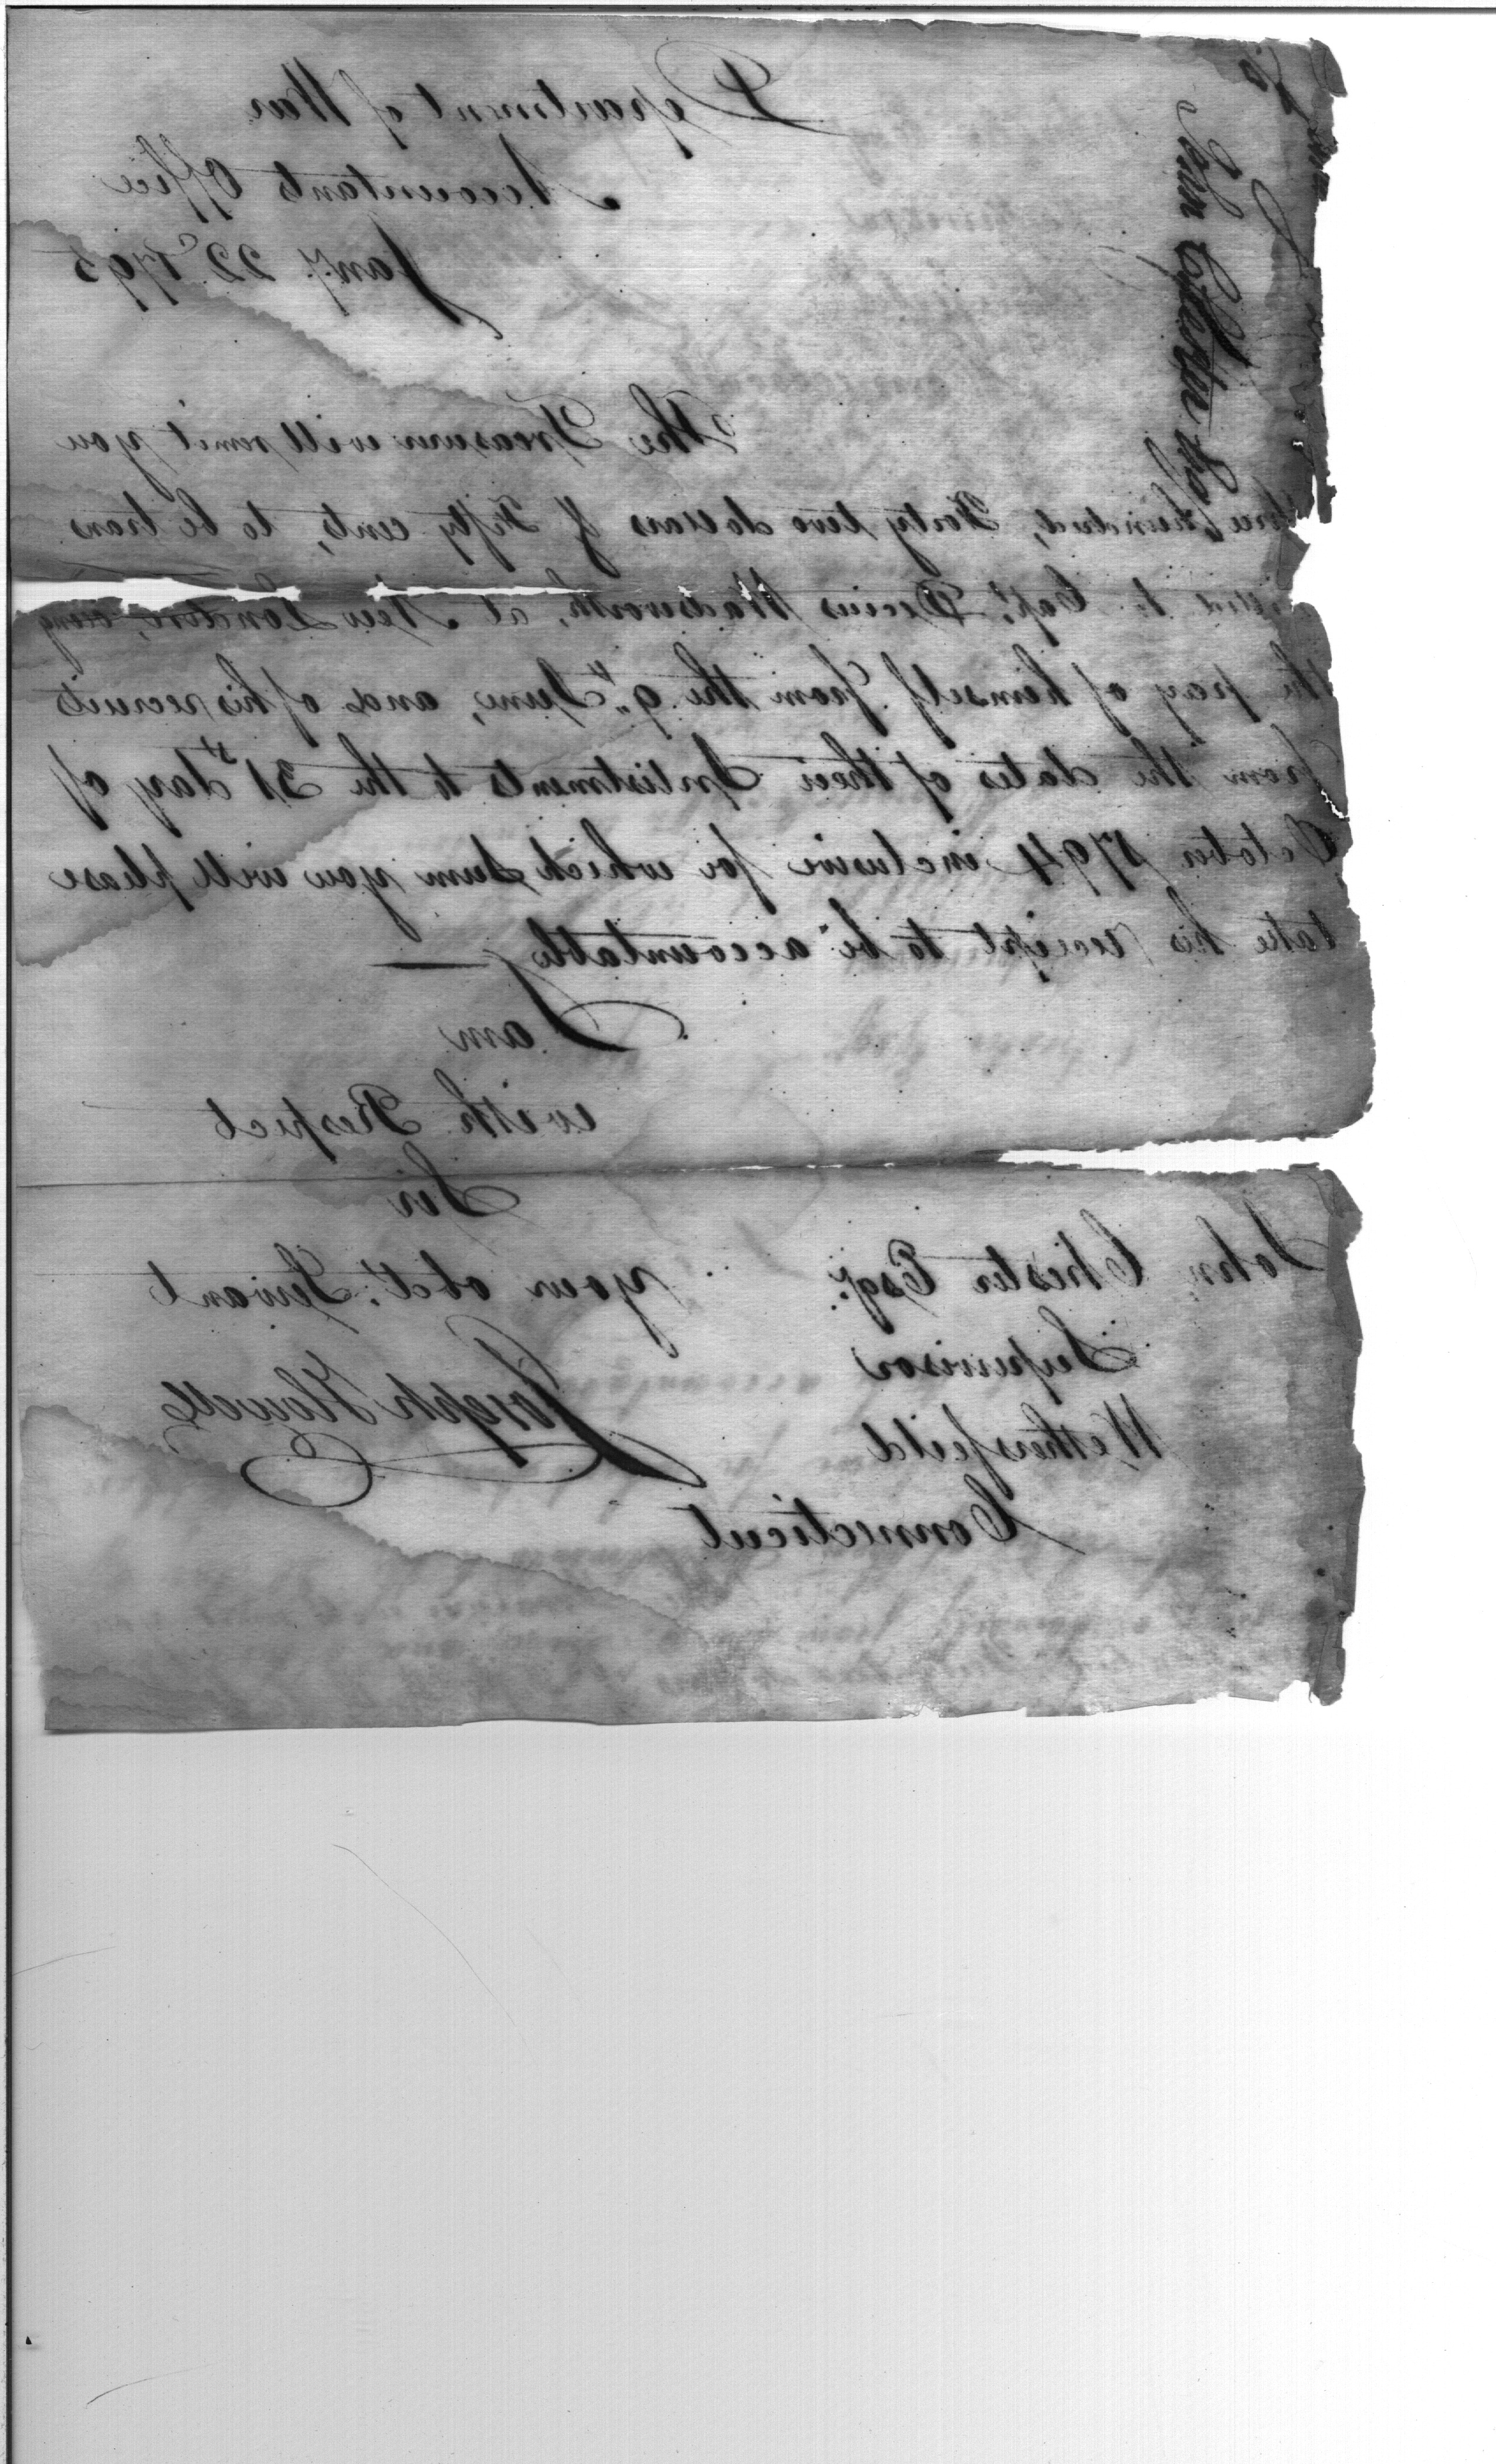 Department of War
Accountants Office
Jany. 22d 1795
John Chester Esqr
Sir
The Treasurer will remit you
hundred, Forty two dollars & Fifty cents, to be trans
to Capt. Decius Wadsworth, at New London, being
the pay of himself from the 9th June, and of his recruits
from the dates of their Inlistments to the 31st day of
October 1794 inclusive for which Sum you will please
take his receipt to be accountable —
I am
with Respect
Sir
your obet. Servant
Joseph Howell
John Chester Esqr.
Supervisor
Wethersfeild
Connecticut